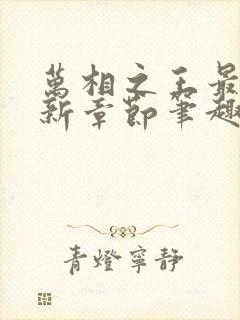 萬相之王最
新章節筆趣
青燈寧靜